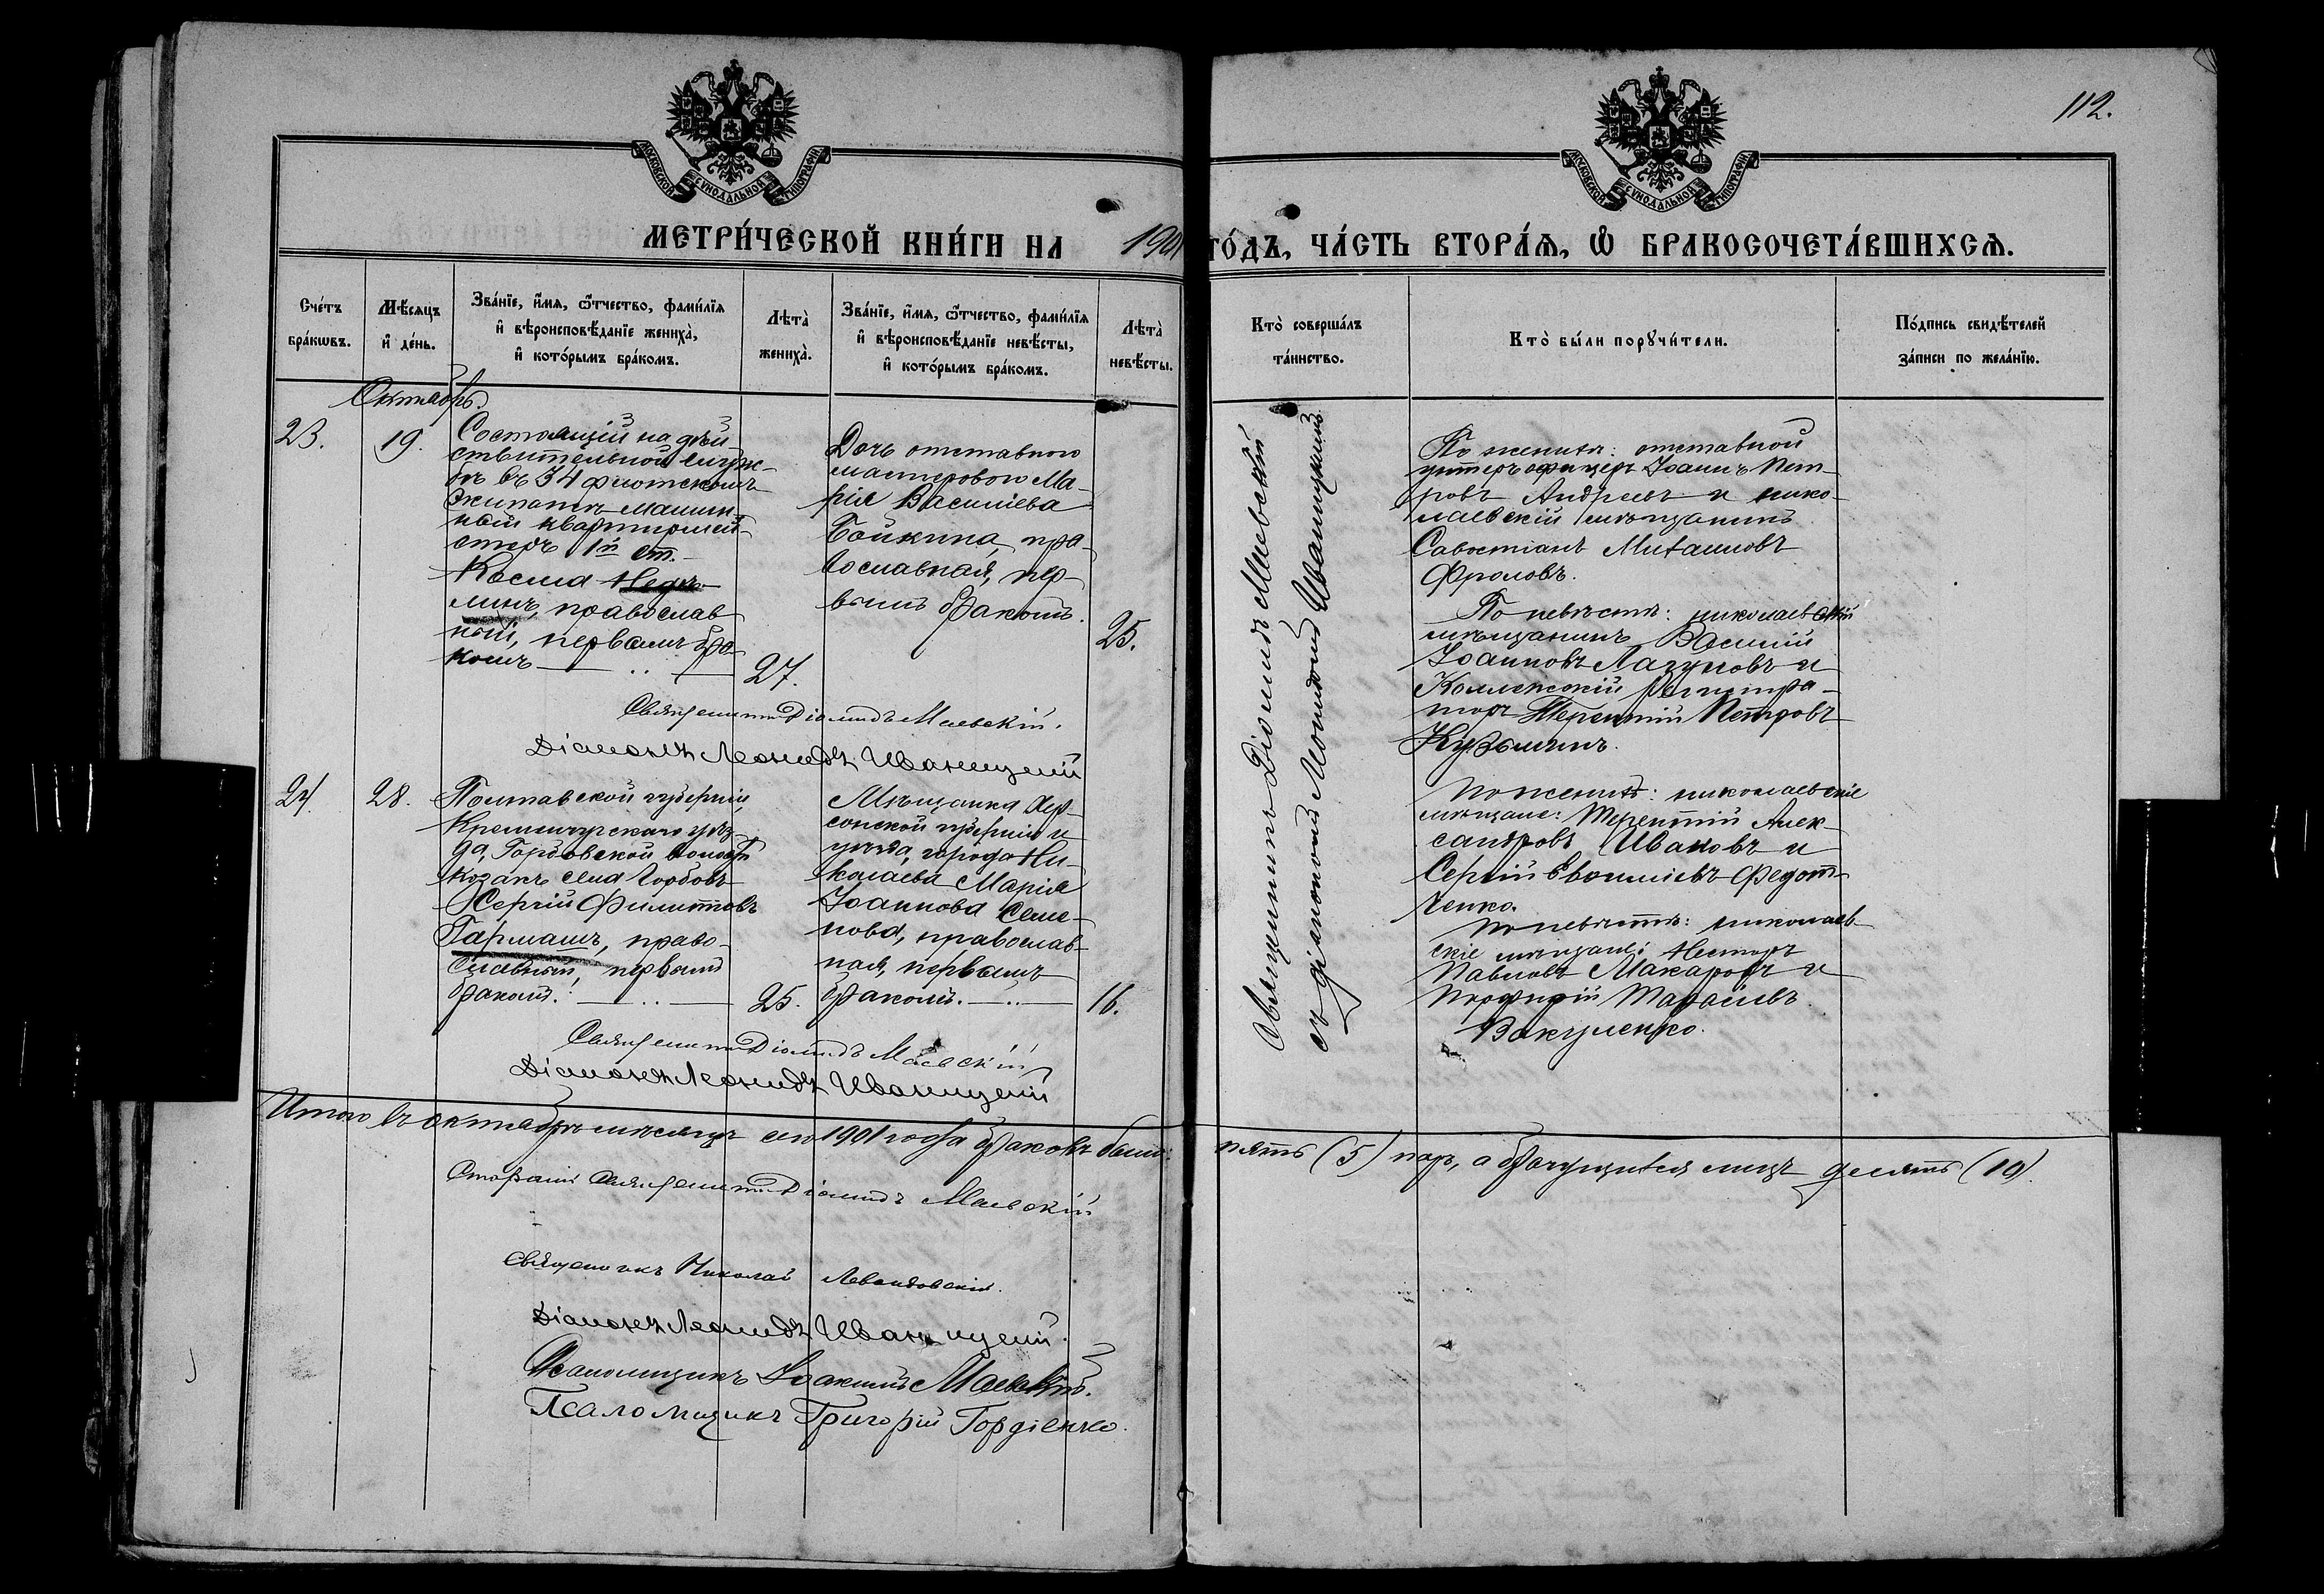 112.
МОСКОВСКОЙ СУНОДАЛЬНОЙ ТИПОГРАФІИ
МОСКОВСКОЙ СУНОДАЛЬНОЙ ТИПОГРАФІИ
МЕТРИ́ЧЕСКОЙ КНИ́ГИ НА 1901
ГО́ДЪ, ЧА́СТЬ ВТОРА́Ѧ, Ѡ҆ БРАКОСОЧЕТА́ВШИХСѦ.
Сче́тъ
бра́кѡвъ.
Мѣ́сяцъ
и҆ де́нь.
Зва́нїе, и҆́мя, ѻ҆́тчество, фами́лїя
и҆ вѣроисповѣ́данїе жениха̀,
и҆ кото́рымъ бра́комъ.
Лѣта̀
жениха̀.
Зва́нїе, и҆́мя, ѻ҆́тчество, фами́лїя
и҆ вѣроисповѣ́данїе невѣ́сты,
и҆ кото́рымъ бра́комъ.
Лѣта̀
невѣ́сты.
Кто̀ соверша́лъ
та́инство.
Кто̀ бы́ли порꙋчи́тели.
По́дпись свидѣ́телей
за́писи по жела́нїю.
Октябрь.
23.
19.
Состоящій на дѣй-
ствительной служ-
бѣ въ 34 флотскомъ
экипажѣ машин-
ный квартирмей-
стеръ 1й ст.
Косма
линъ, православ
ный, первымъ бра-
комъ
27.
Дочь отставного
мастерового Ма-
рія Василіева
Бойкина, пра-
вославная, пер-
вымъ бракомъ.
25.
Священникъ Діомидъ Маевскій
съ діакономъ Леонидомъ Иваницкимъ
По женихѣ: отставной
унтеръ офицеръ Іоаннъ Пет-
ровъ Андреевъ и нико-
лаевскій мѣщанинъ
Савостіанъ Михаиловъ
Фроловъ.
По невѣстѣ: николаевскій
мѣщанинъ Василій
Іоанновъ Лагуновъ и
Коллежскій Регистра-
торъ Терентій Петровъ
Кузьминъ.
Священникъ Діомидъ Маевскій.
Діаконъ Леонидъ Иваницкій
24.
28.
Полтавской губерніи
Кременчугскаго уѣз-
да, Горбовской волости
козакъ села Горбовъ
Сергій Филипповъ
Гармашъ, право-
славный, первымъ
бракомъ.
25.
Мѣщанка Хер-
сонской губерніи и
уѣзда, города Ни-
колаева Марія
Іоаннова Семе-
нова, православ-
ная, первымъ
бракомъ.
16.
По женихѣ: николаевскіе
мѣщане: Терентій Алек-
сандровъ Ивановъ и
Сергій Евфиміевъ Федот-
ченко.
По невѣстѣ: николаев-
скіе мѣщане: Несторъ
Павловъ Макаровъ и
Порфирій Тарасіевъ
Вакуленко.
Священникъ Діомидъ Маевскій
Діаконъ Леонидъ Иваницкій
Итого въ октябрѣ мѣсяцѣ сего 1901 года браковъ было: пять (5) паръ, а брачущихся лицъ десять (10).
Старшій Священникъ Діомидъ Маевскій
Священникъ Николай Левандовскій.
Діаконъ Леонидъ Иваницкій.
Псаломщикъ Іоакимъ Маевскій.
Псаломщикъ Григорій Гордіенко.